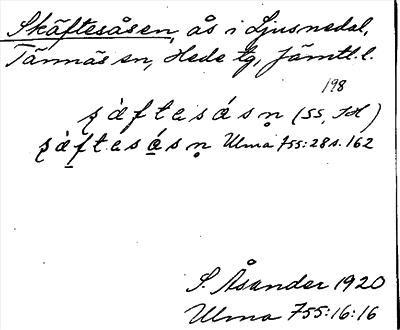 Skäftesåsen, ås i Ljusnedal,
Tännäs sn, Hede tg, Jämtl. l.
198
ʂàftesásn̥ (SS, JH)
ʂàftesásn̥ Ulma 755:28 s. 162
S. Åsander 1920
Ulma 755:16:16